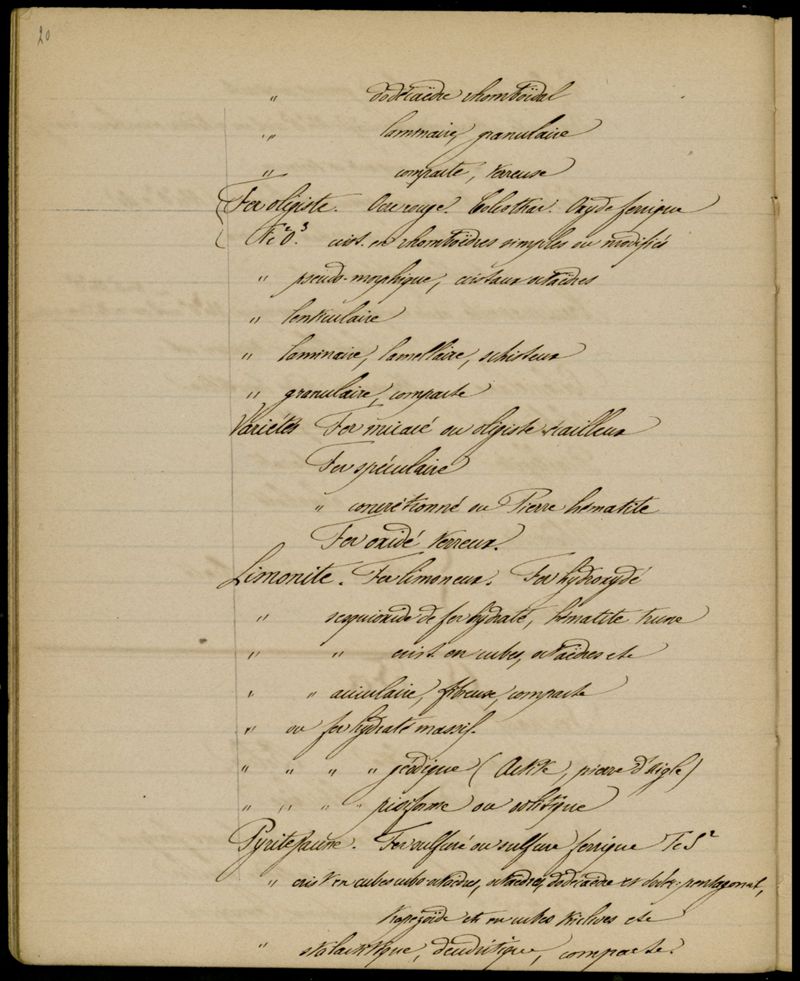 20
" dodécaèdre rhomboïdal
" laminaire, granulaire
" compacte, terreuse
Fer oligiste. Ocre rouge. Colcothar. Oxyde ferrique
Fe²O³. crist. en rhomboèdres simples ou modifiés
" pseudo-morphique, cristaux octaèdres
" lenticulaire
" laminaire, lamellaire, schisteux
" granulaire, compacte
Variétés Fer micacé ou oligiste écailleux
Fer spéculaire
" concrétionné ou Pierre hématite
Fer oxidé terreux.
Limonite. Fer limoneux. Fer hydroxydé
" sesquioxide de fer hydraté, hématite brune
" " crist. en cubes, octaèdres etc
" " aciculaire, fibreuse, compacte
" ou fer hydraté massif.
" " " " géodique (Aetite, pierre d'aigle)
" " " " pisiforme ou oolitique
Pyrite jaune. Fer sulfuré ou sulfure ferrique FeS²
" crist en cubes cubo-octaèdres, octaèdres, dodécaèdre et pentagonal,
trapézoïde etc en cubes triclives etc
" stalactitique, dendritique, compacte.